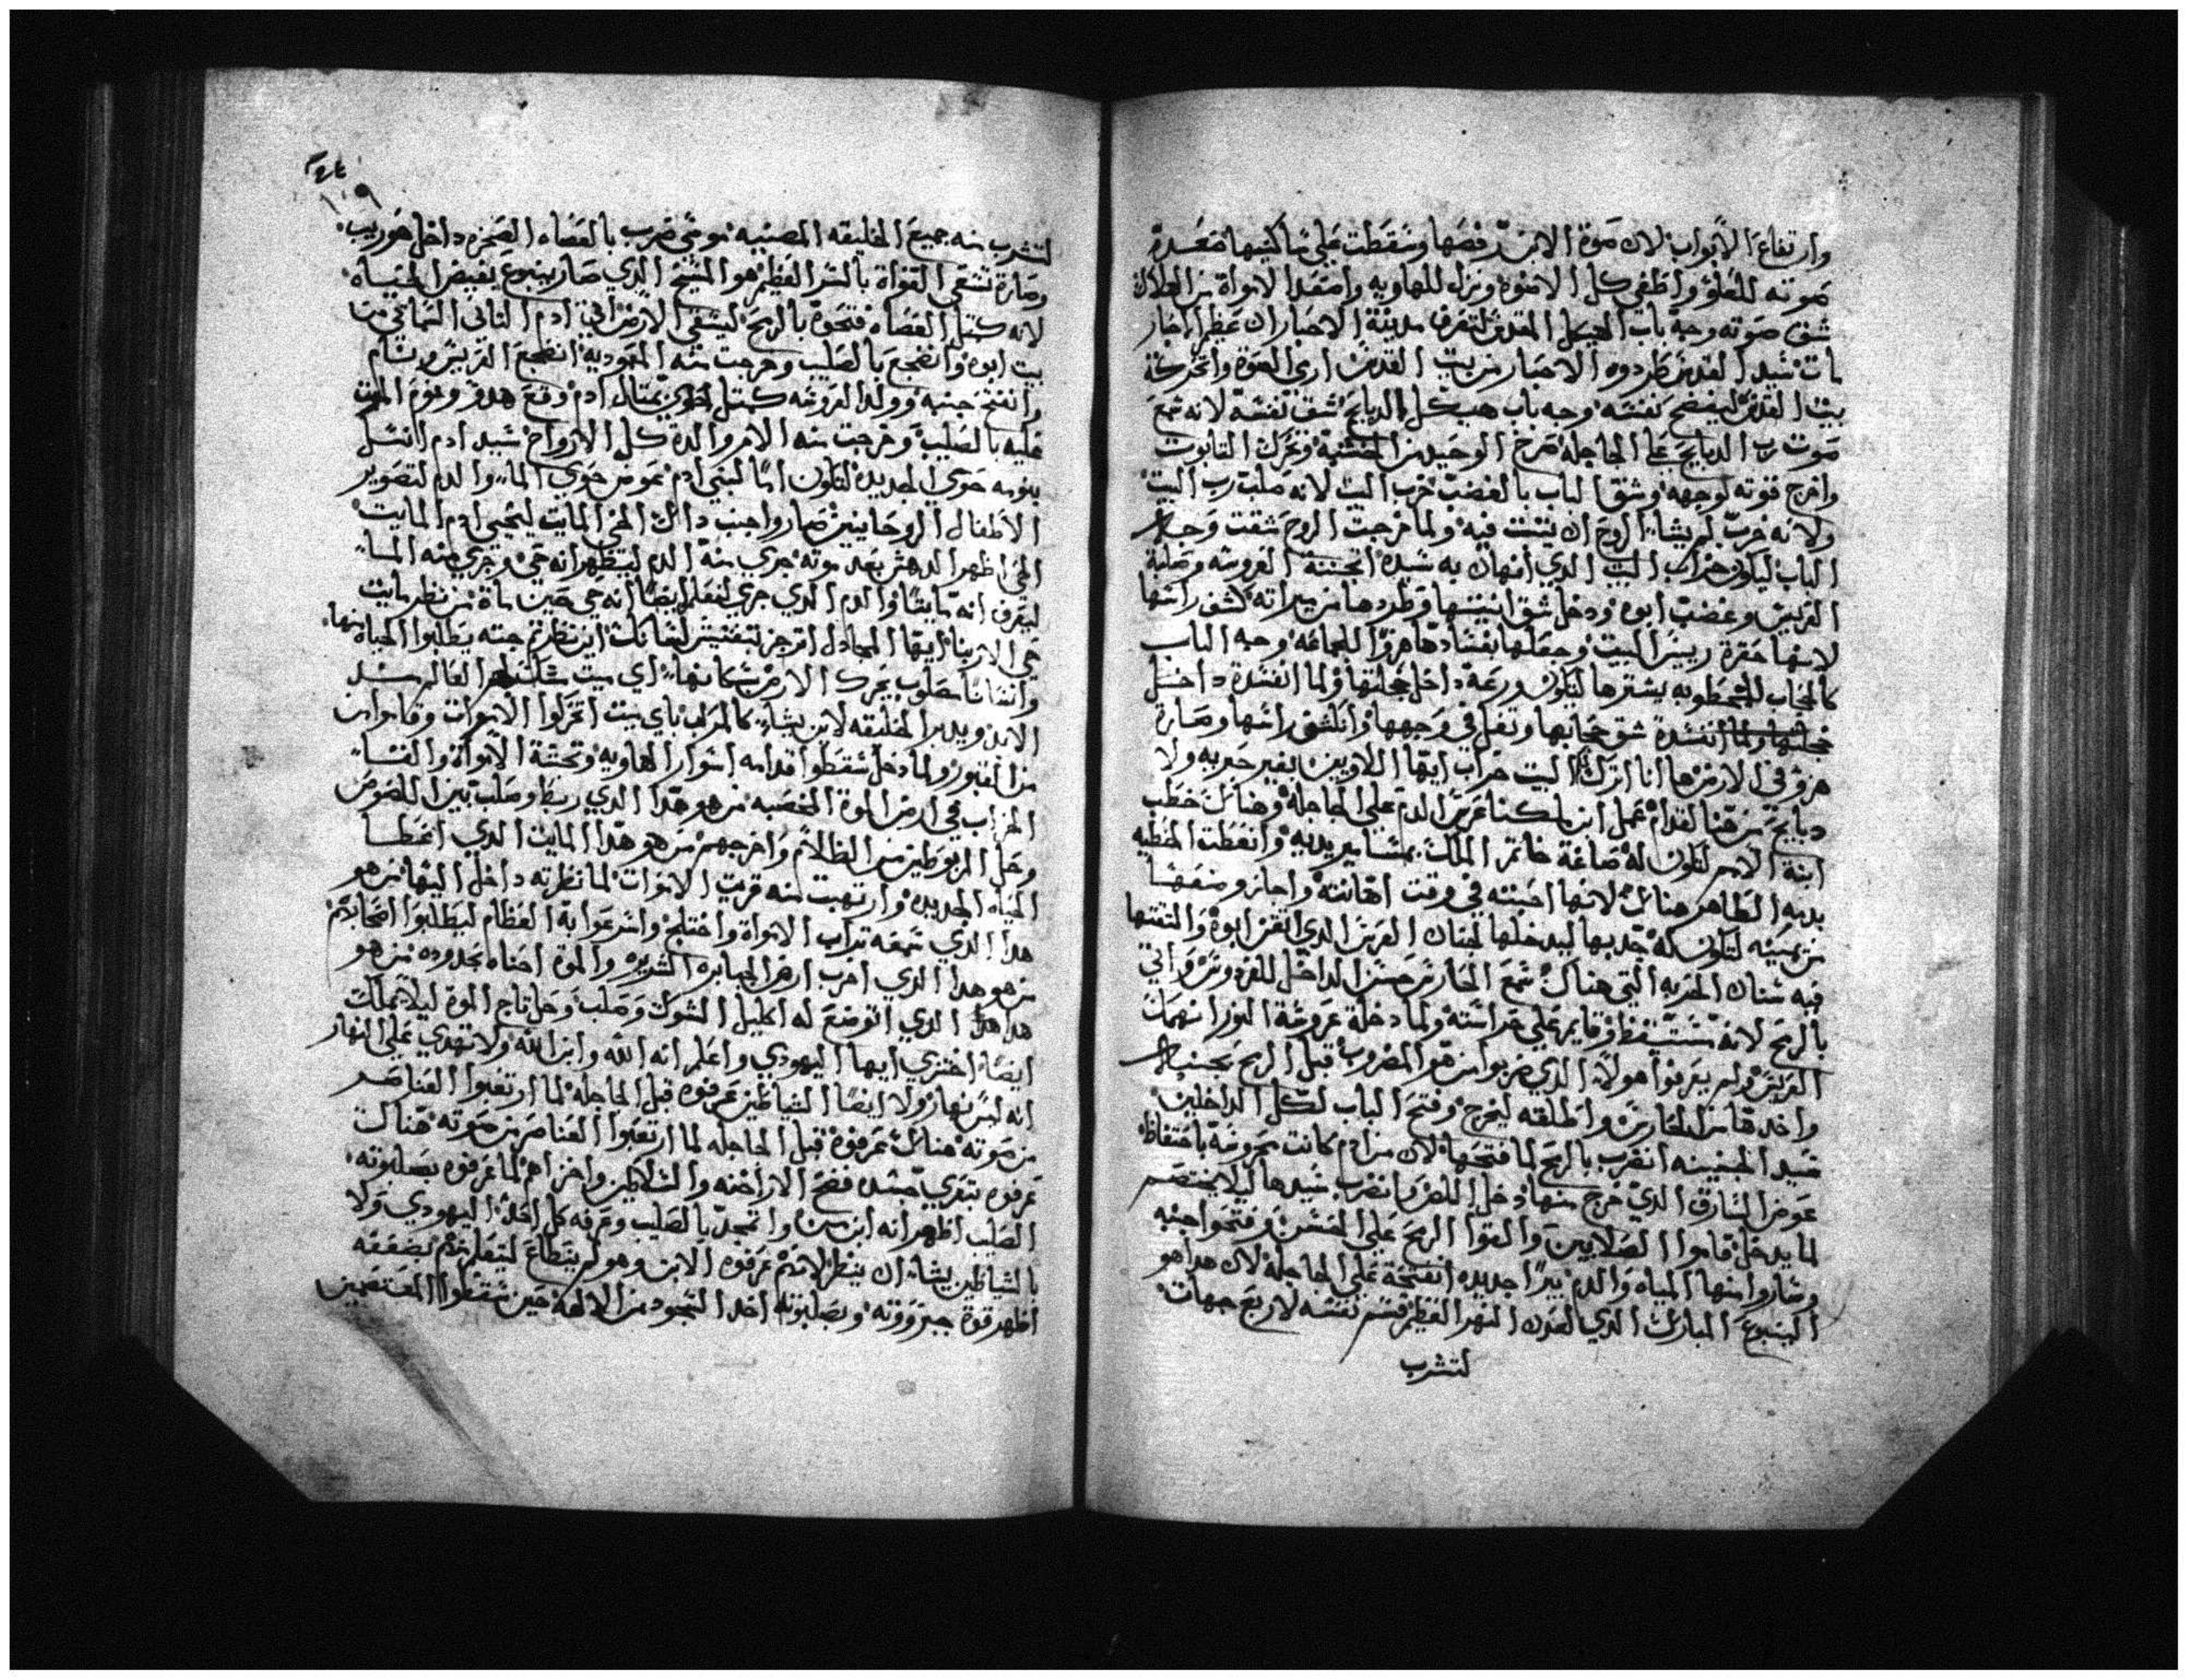 وارتفاع الابواب لان موة الابن رفصها وسقطت على ساكنيها صعدة
صوته للعلو واظفى كل الاضوه ونزل للهاويه واصعد الاموات من الظلال
شق صوته وجه باب الهيكل المقدس لتعرف مدينة الاحبار ان عظيم الاحبار
مات سيد القدس طردوه الاحبار من بيت القدس ارمى القوة وانحركة
بيت القدس ليفضح نفسه وجه باب هيكل الدبايح شق نفسه لانه سمع
صوت رب الدبايح على الجاجله صرخ الوحيد من الخشبة وتحرك التابوت
واخرج قوته لوجهه وشق الباب بالغضب خرب البيت لانه صلب رب البيت
ولانه خرب لم يشا الروح ان يتبت فيه ولما خرجت الروح شقت وجه
الباب ليكون خراب البيت الذي انهان به سيده اتجننة العروسه وصلبة
العريس وغضب ابوه ودخل شق ابنيتها وطردها من ميراته كشف راسها
لانها حقرة رييس البيت وجعلها بفسادها هزوا للجماعه وجه الباب
كالحجاب للمخطوبه يسترها لتكون ورعة داخل حجلتها ولما انفسدة داخل
حجلتها ولما انفسدة شق حجابها وتفل في وجهها وانكشف راسها وصارة
هزو في الارض ها انا اترك البيت خراب ايها اللاويين بغير حبريه ولا
دبايح من هنا لقدام عمل ابن ملكنا عرس الدم على الجاجله وهناك خطب
ابنة الامم لتكون له صاغة خاتم الملك بمسامير يديه وانعطت الخطيه
بدمه الطاهر هناك لانها احبته في وقت اهانته واجاز ومنعها
من يمينه لتكون له جدبها ليدخلها لجنان العرس الذي اتقن ابوه والتقتها
فيه سنان الحربه التي هناك سمع الحارس حسن الداخل للفردوس واتى
بالرمح لانه مستيقظ وقايم على حراسته ولما دخلة عروسة النور انهمك
العريس ولم يعرفوا هولاء الذي ضربوا من هو المضروب قبل الرمح بجنبه
واخدها من الحارس واطلقه ليخرج وفتح الباب لكل الداخلين
سيد الجنينه انضرب بالرمح لما فتحها لان من ادم كانت محروسه باحتفاظ
عوض السارق الذي خرج منها دخل اللص وانضرب سيدها ليلا يختصم
لما يدخل قاموا الصلابين والقوا الرمح على الحسن وفتحوا جنبه
وصاروا منها المياه والدم بيرا جديده انفتحة على الجاجلة لان هدا هو
الينبوع المبارك الذي لعدن النهر العظيم قسم نفسه لاربع جهات
لتشرب
١٠٩
لتشرب منه جميع الخليقه المصنيه موسى ضرب بالعصاه الصخره داخل حوريب
وصارة تسقي القواة بالسر العظيم هو المسيح الذي صار ينبوع يفيض المياه
لانه كمتل العصاه فتحوة بالرمح ليسقي الارض اتى ادم التاني السماي من
بيت ابوه وانضجع بالصليب وخرجت منه المعموديه انضجع العريس ونام
وانفتح جنبه وولد العروسه كمتل حوى بمتال ادم وقع هدو ونوم الموت
عليه بالصليب وخرجت منه الام والدة كل الارواح سيد ادم انسل
بنومه حوى الجديده لتكون اما لبني ادم عوض حوى الما والدم لتصوير
الاطفال الروحانيين صاروا جنب داك الحي المايت ليحيي ادم المايت
الحي اظهر الدهش بعد موته جرى منه الدم ليتظهر انه حي وجري منه الما
ليعرف انه مايتا والدم الذي جرى لنعلم ايضا انه حي حين ماة من نظر مايت
حي الا ربنا ايها المجادل اترجز بتفتيش لسانك اين نظرة جته يطلبوا الحياه منها
وانسانا مصلوب يحرك الارض بسكانها اي ميت شك لهم العالم سند
الابد ويدبر الخليقه لابن يشاء كالمركب باي بيت اتحركوا الاموات وقاموا من
من القبور ولما دخل سقطوا قدامه اسوار الهاويه وتحتتة الاموات والفسا
الخراب في ارض الموة الخصبه من هو هدا الذي ربط وصلب بين اللصوص
وحل المربوطين من الظلام واخرجهم من هو هدا المايت الذي اعطا
الحياه الجديده وارتهبت منه قريت الاموات لما نظرته داخل اليها من هو
هدا الذي سمعه تراب الاموات واختلج واسرعوا به العظام ليطلبوا اصحابهم
من هو هدا الذي اخرب ارض الجبابره الشديره والموة احناه بحدوده من هو
هدا الذي اتوضع له اكليل الشوك وصلب وحل تاج الموة ليلا يملك
ايضا اخشزي ايها اليهودي واعلم انه الله وابن الله ولا تهدي على النهار
انه ليس نهار ولا ايضا الشياطين عرفوه قبل الجاجله لما ارتعبوا العناصر
من موته هناك عرفوه قبل الجاجله لما ارتعبوا العناصر من صوته هناك
عرفوه بتعري جسده فضح الاراخنه والسلاطين واخزاهم لما عرفوه بصلبوته
الصليب اظهر انه ابن من واتمجد بالصليب وعرفه كل احد اليهودي ولا
بالشياطين يشاء ان ينظر لانهم عرفوه الابن وهو لم يتطاع ليتعلم منهم بضعفه
اظهر قوة جبروته وبصلبوته اخد السجود من الالهة حين سقطوا المعتصمين